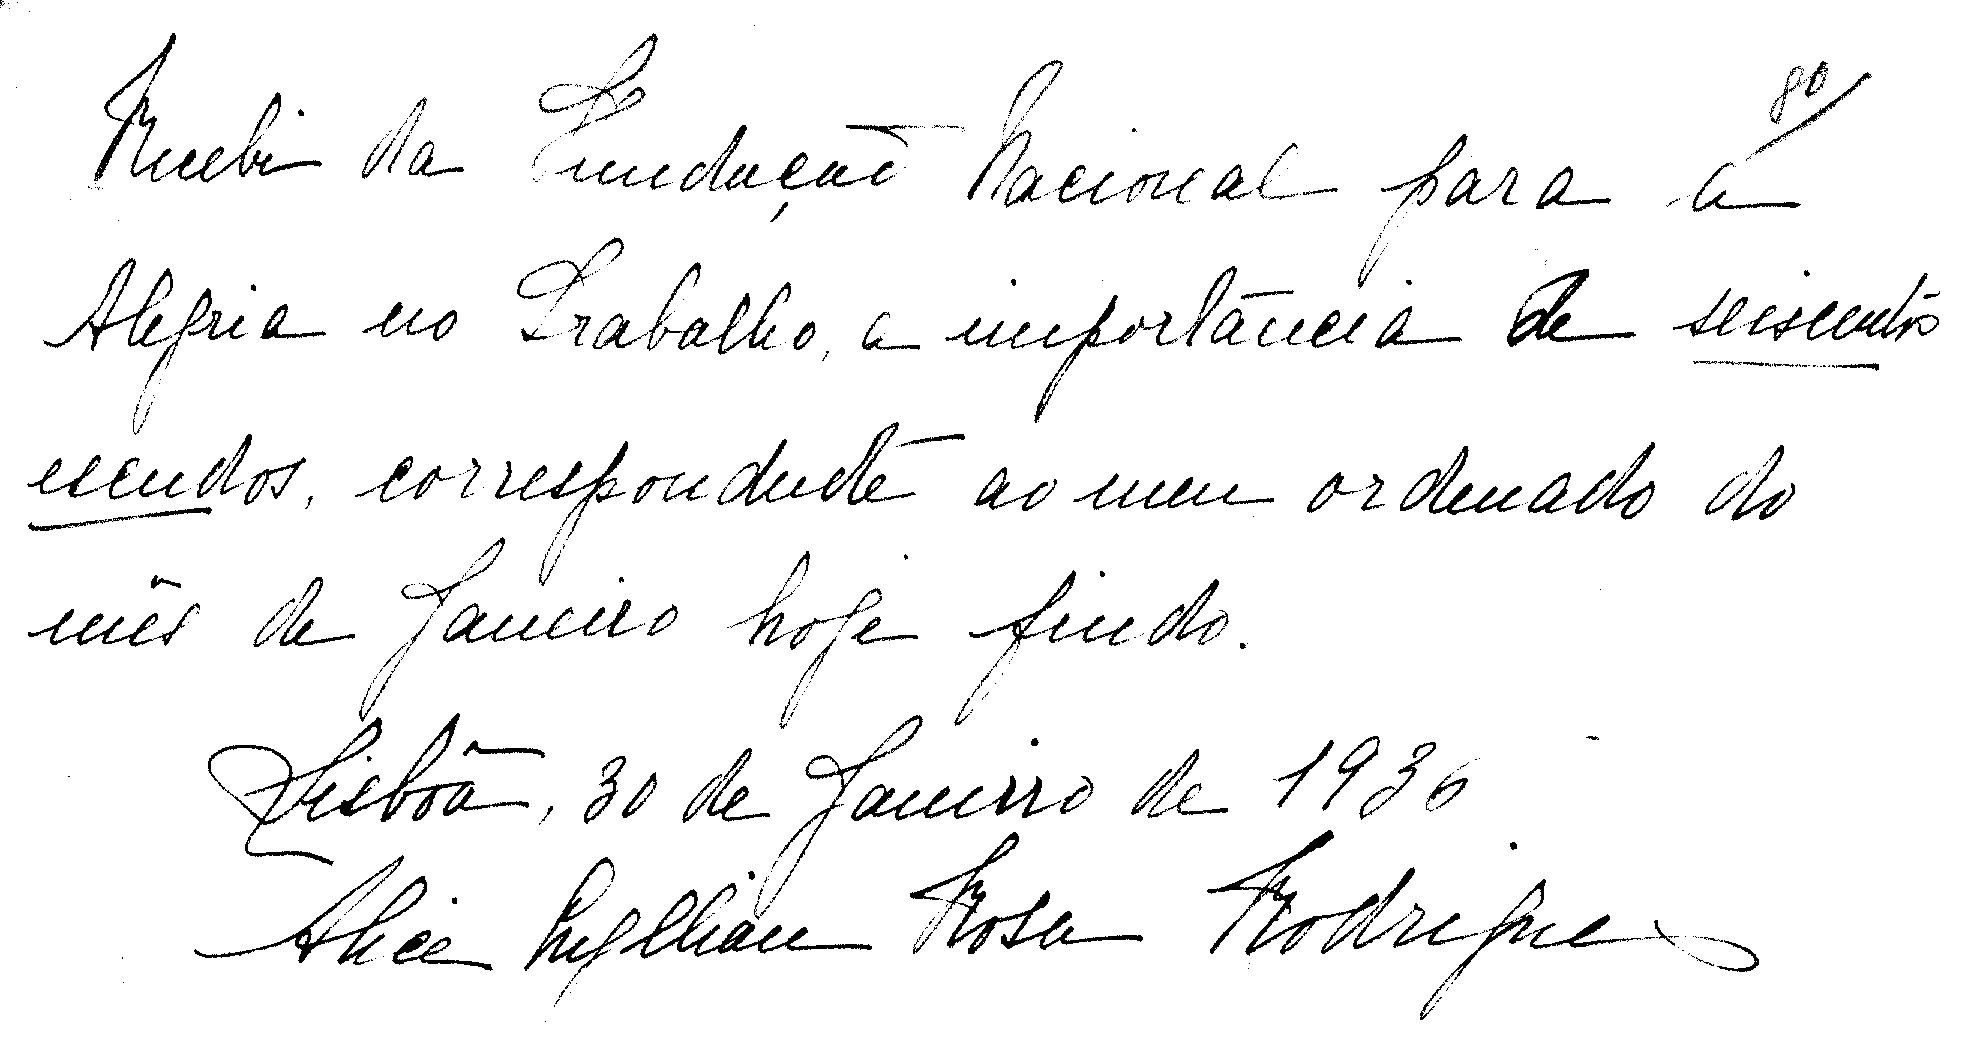 80
Recebi da Fundação Nacional para a
Alegria no Trabalho, a importância de seiscentos
escudos, correspondente ao meu ordenado do
mês de Janeiro hoje findo.
Lisbôa, 30 de Janeiro de 1936
Alice Rosa Rodrigues